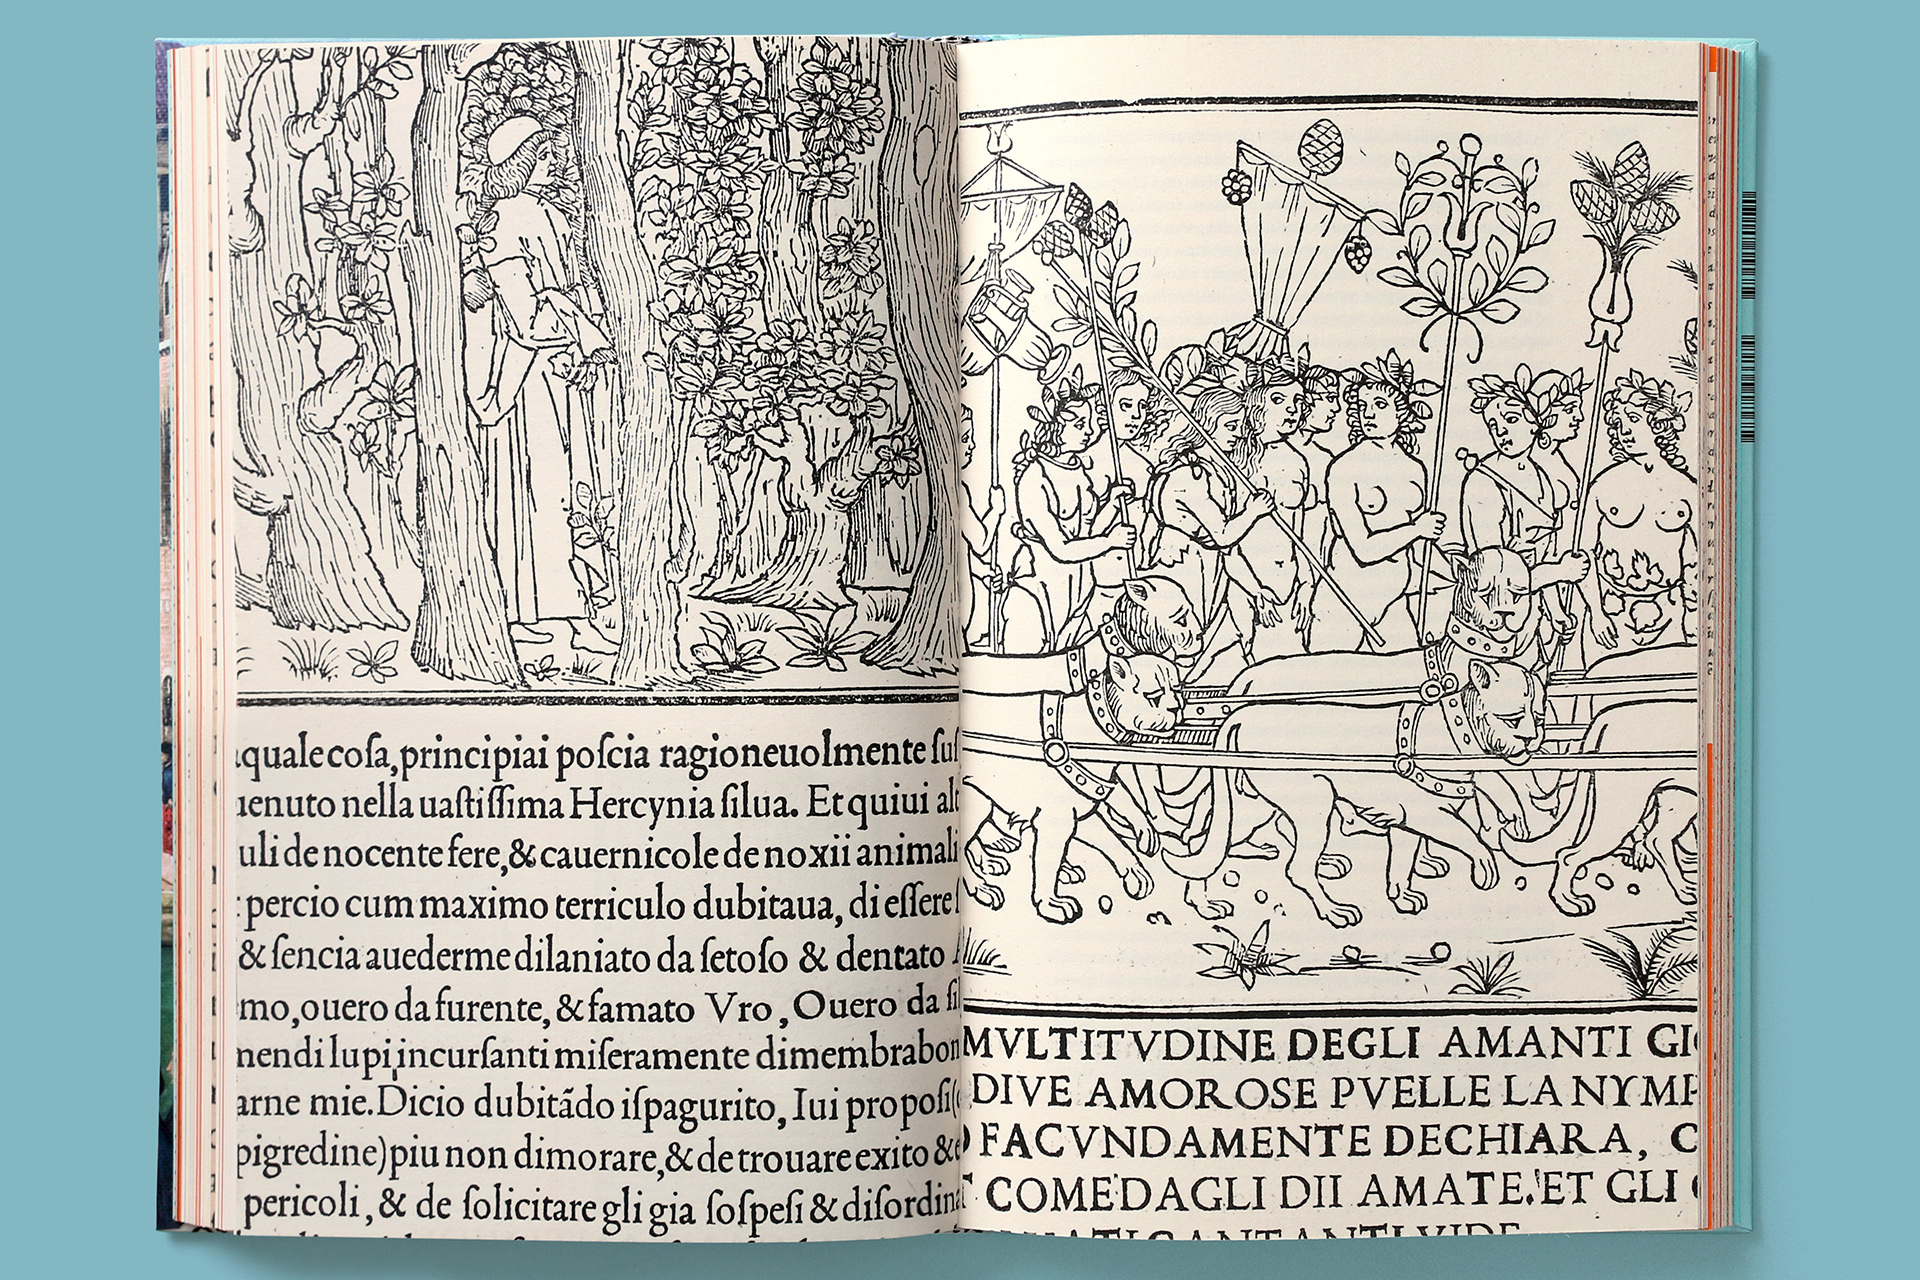 quale coſa, principiai poſcia ragioneuolmente ſuſ
uenuto nella uaſtiſſima Hercynia ſilua. Et quiui alt
uli de nocente fere, & cauernicole de noxii animali
percio cum maximo terriculo dubitaua, di eſſere
& ſencia auederme dilaniato da ſetoſo & dentato
mo, ouero da furente, & famato Vro, Ouero da ſi
mendi lupi incurſanti miſeramente dimembrabon
arne mie. Dicio dubitãdo iſpagurito, Iui propoſi(
pigredine) piu non dimorare, & de trouare exito & e
pericoli, & de ſolicitare gli gia ſoſpeſi & diſordina
MVLTITVDINE DEGLI AMANTI GI
DIVE AMOROSE PVELLE LA NYMP
FACVNDAMENTE DECHIARA, C
COME DAGLI DII AMATE. ET GLI